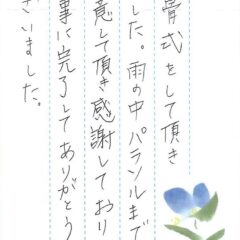 骨式をして頂き
した。雨の中パラソルまで
意して頂き感謝しており
事に完了してありがとう
いました。